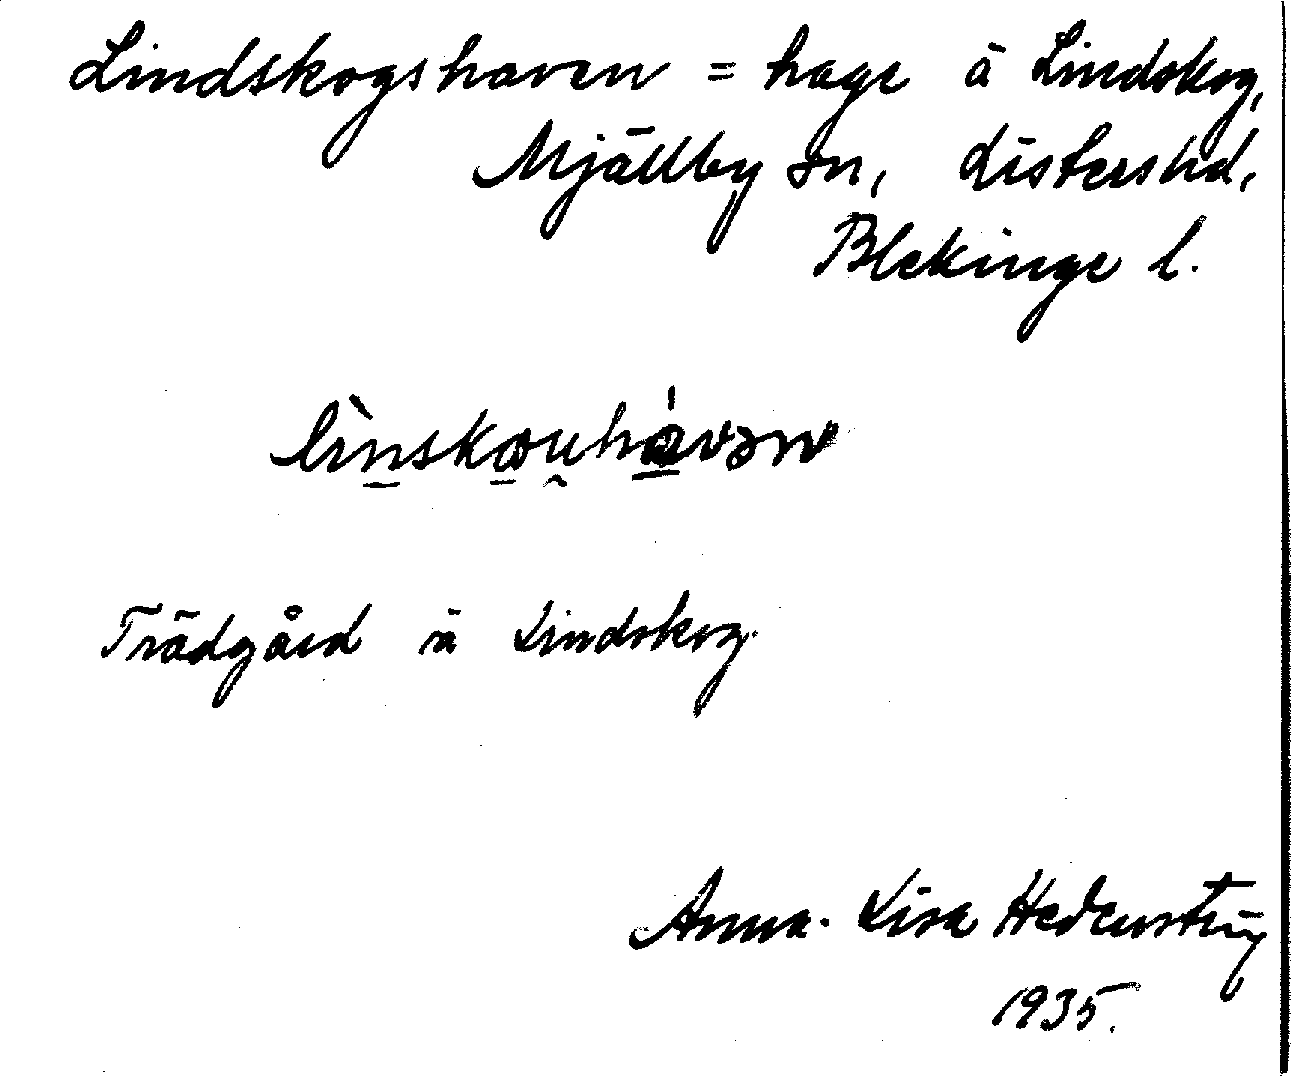 Lindskogshaven = hage å Lindskog,
Mjällby sn, Listers hd,
Blekinge l.
lìnskɷu̯háven
Trädgård å Lindskog.
Anna-Lisa Hedenstierna
1935.